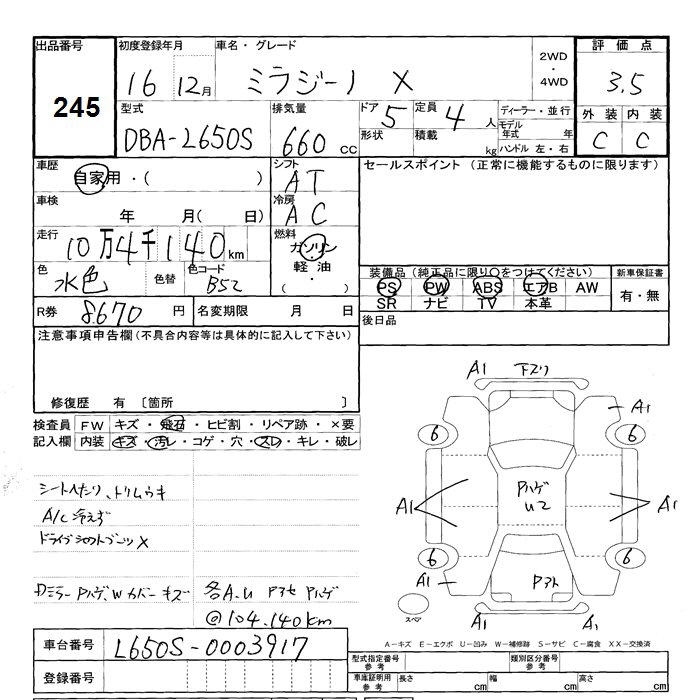 出品番号 初度登録年月 車名・グレード 2WD ・ 4WD 評価点
245 16 12月 ミラジーノ X 3.5
型式 排気量 ドア 定員 ディーラー・並行 外装 内装
DBA-L650S 660 cc 5 4 人 モデル年式 年 C C
形状 積載 kg ハンドル 左・右
車歴 自家用・( ) シフト AT セールスポイント (正常に機能するものに限ります)
車検 年 月( 日) 冷房 AC
走行 10万4千140km 燃料 ガソリン・軽油・( )
色 水色 色替 色コード B52 装備品(純正品に限り○をつけてください) 新車保証書
PS PW ABS エアB AW 有・無
SR ナビ TV 本革
R券 8670 円 名変期限 月 日 後日品
注意事項申告欄(不具合内容等は具体的に記入して下さい)
修復歴 有 〔箇所 〕
検査員 FW キズ・飛石・ヒビ割・リペア跡・×要
記入欄 内装 キズ・汚レ・コゲ・穴・スレ・キレ・破レ
シートヘタリ、トリムウキ
A/C冷えず
ドライブシャフトブーツ×
Dミラー Pハゲ、Wカバーキズ 各A.U Pアセ Pハゲ
@104.140km
A1 下ズリ
A1
6 6
Pハゲ
U2
A1 A1
6 6
A1 Pアト
スペア A1 A1
A-キズ E-エクボ U-凹み W-補修跡 S-サビ C-腐食 XX-交換済
車台番号 L650S-0003917
型式指定番号 参考 類別区分番号 参考
登録番号 車庫証明用 参考 長さ cm 幅 cm 高さ cm